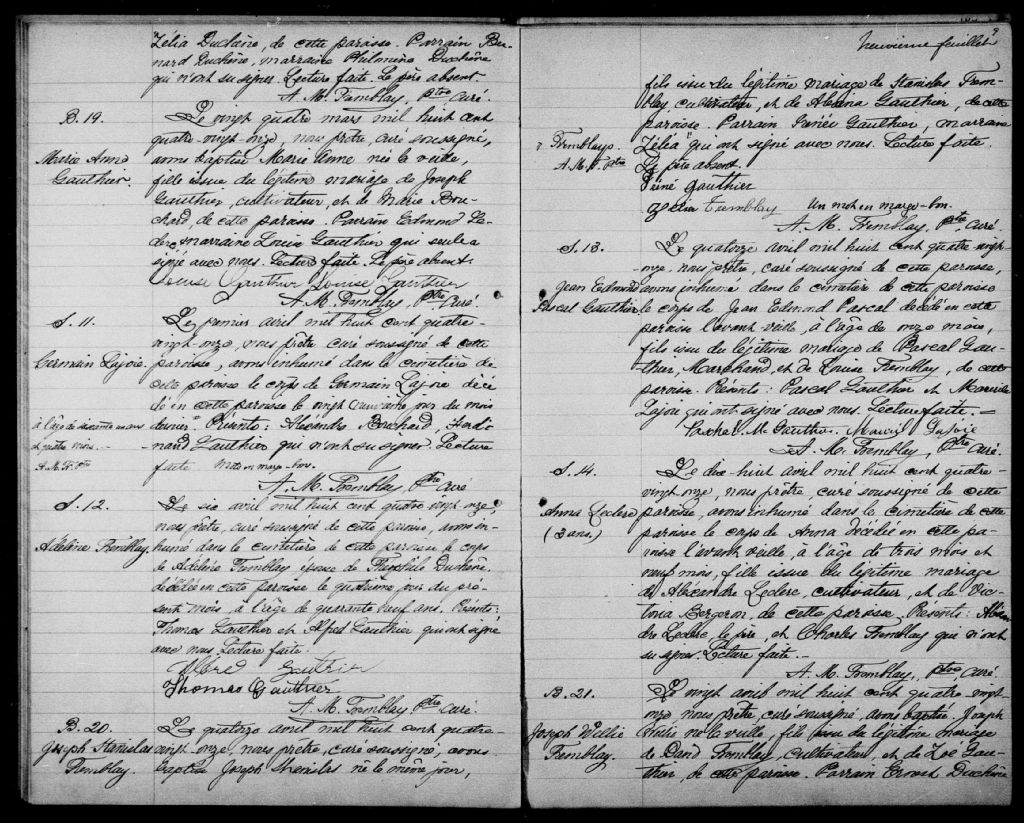 Zélia Duchêne, de cette paroisse. Parrain Ber-
nard Duchêne, marraine Philmina Duchêne
qui n'ont su signer. Lecture faite. Le père absent
A. M. Tremblay, Ptre Curé.
B. 19.
Marie Anne
Gauthier.
Le vingt quatre mars mil huit cent
quatre-vingt-onze, nous prêtre, curé soussigné,
avons baptisé Marie Anne née la veille,
fille issue du légitime mariage de Joseph
Gauthier, cultivateur, et de Marie Bou-
chard, de cette paroisse. Parrain Edmond Le-
clerc, marraine Louise Gauthier qui seule a
signé avec nous. Lecture faite. Le père absent.
Louise Gauthier Louise Gauthier
A. M. Tremblay, Ptre Curé.
S. 11.
Germain Lajoie.
à l'âge de soixante un ans
et quatre mois.
A. M. T. Ptre
Le premier avril mil huit cent quatre-
vingt-onze, nous prêtre curé soussigné de cette
paroisse, avons inhumé dans le cimetière de
cette paroisse le corps de Germain Lajoie décé-
dé en cette paroisse le vingt jour du mois
dernier. Présents: Alexandre Bouchard, Ferdi-
nand Gauthier qui n'ont su signer. Lecture
faite. Mots en marge-bon.
A. M. Tremblay, Ptre Curé
S. 12.
Adéline Tremblay.
Le six avril mil huit cent quatre vingt onze
nous prêtre, curé soussigné de cette paroisse, avons in-
humé dans le cimetière de cette paroisse le corps
de Adéline Tremblay épouse de Duchêne,
décédée en cette paroisse le quatrième jour du pré-
sent mois à l'âge de quarante neuf ans. Présents:
Thomas Gauthier et Alfred Gauthier qui ont signé
avec nous. Lecture faite.
Alfred Gauthier
Thomas Gauthier
A. M. Tremblay Ptre Curé.
B. 20.
Joseph Stanislas
Tremblay.
Le quatorze avril mil huit cent quatre
vingt-onze, nous prêtre, curé soussigné, avons
baptisé Joseph Stanislas né le même jour,
9
Neuvième feuillet
fils issu du légitime mariage de Stanislas Trem-
blay cultivateur, et de Gauthier, de cette
paroisse. Parrain Gauthier, marraine
Tremblay.
A. M. T. Ptre
Zélia qui ont signé avec nous. Lecture faite.
Le père absent.
Gauthier
Zélia Tremblay Un mot en marge-bon.
A. M. Tremblay, Ptre Curé.
S. 13.
Jean Edmond
Pascal Gauthier
Le quatorze avril mil huit cent quatre-vingt-
onze, nous prêtre, curé soussigné de cette paroisse,
avons inhumé dans le cimetière de cette paroisse
le corps de Jean Edmond Pascal décédé en cette
paroisse l'avant veille, à l'âge de onze mois,
fils issu du légitime mariage de Pascal Gau-
thier, Marchand, et de Louise Tremblay, de cette
paroisse. Présents: Pascal Gauthier et
Lajoie qui ont signé avec nous. Lecture faite.-
Paschal M. Gauthier. Lajoie
A. M. Tremblay, Ptre Curé.
S. 14.
Anna Leclerc
(3 ans.)
Le dix-huit avril mil huit cent quatre-
vingt-onze, nous prêtre, curé soussigné de cette
paroisse, avons inhumé dans le cimetière de cette
paroisse le corps de Anna décédée en cette pa-
roisse l'avant veille, à l'âge de trois mois et
neuf mois, fille issue du légitime mariage
de Aléxandre Leclerc, cultivateur, et de Vic-
toria Bergeron, de cette paroisse. Présents: Aléxan-
dre Leclerc, le père, et Charles Tremblay qui n'ont
su signer. Lecture faite.-
A. M. Tremblay, Ptre Curé.
B. 21.
Joseph Willie
Tremblay.
Le vingt avril mil huit cent quatre vingt
onze, nous prêtre, curé soussigné, avons baptisé Joseph
Willie né la veille, fils issu du légitime mariage
de David Tremblay, cultivateur, et de Zoé Gau-
thier, de cette paroisse. Parrain Ernest Duchêne